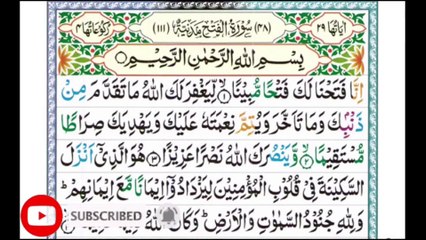 اٰيَاتُهَا ٢٩ (٤٨) سُوْرَةُ الْفَتْحِ مَدَنِيَّةٌ (١١١) رُكُوْعَاتُهَا ٤
بِسْمِ اللّٰهِ الرَّحْمٰنِ الرَّحِيْمِ
اِنَّا فَتَحْنَا لَكَ فَتْحًا مُّبِيْنًا ۙ﴿۱﴾ لِّيَغْفِرَ لَكَ اللّٰهُ مَا تَقَدَّمَ مِنْ
ذَنْۢبِكَ وَمَا تَاَخَّرَ وَيُتِمَّ نِعْمَتَهٗ عَلَيْكَ وَيَهْدِيَكَ صِرَاطًا
مُّسْتَقِيْمًا ۙ﴿۲﴾ وَّيَنْصُرَكَ اللّٰهُ نَصْرًا عَزِيْزًا ﴿۳﴾ هُوَ الَّذِيْۤ اَنْزَلَ
السَّكِيْنَةَ فِيْ قُلُوْبِ الْمُؤْمِنِيْنَ لِيَزْدَادُوْۤا اِيْمَانًا مَّعَ اِيْمَانِهِمْ ؕ
وَلِلّٰهِ جُنُوْدُ السَّمٰوٰتِ وَالْاَرْضِ ؕ وَكَانَ اللّٰهُ
SUBSCRIBED